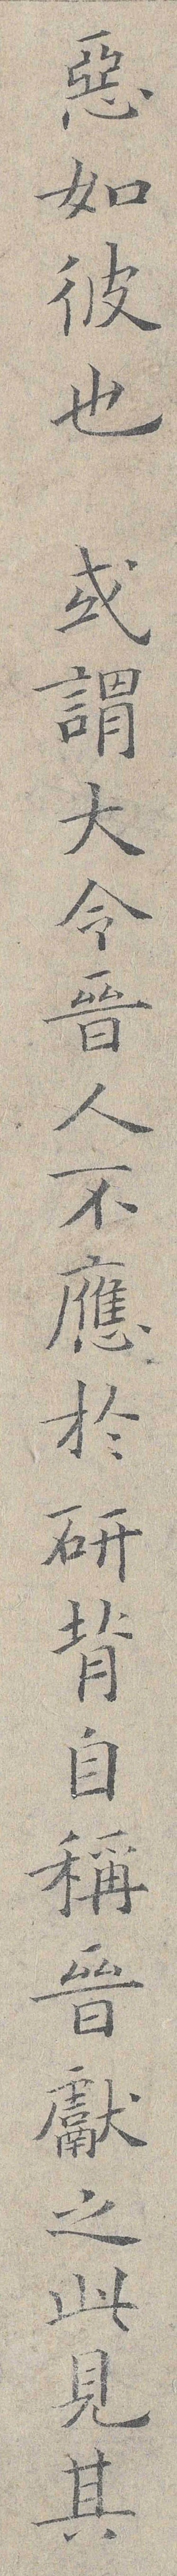 惡如彼也　或謂大令晉人不應於研背自稱晉獻之此見其